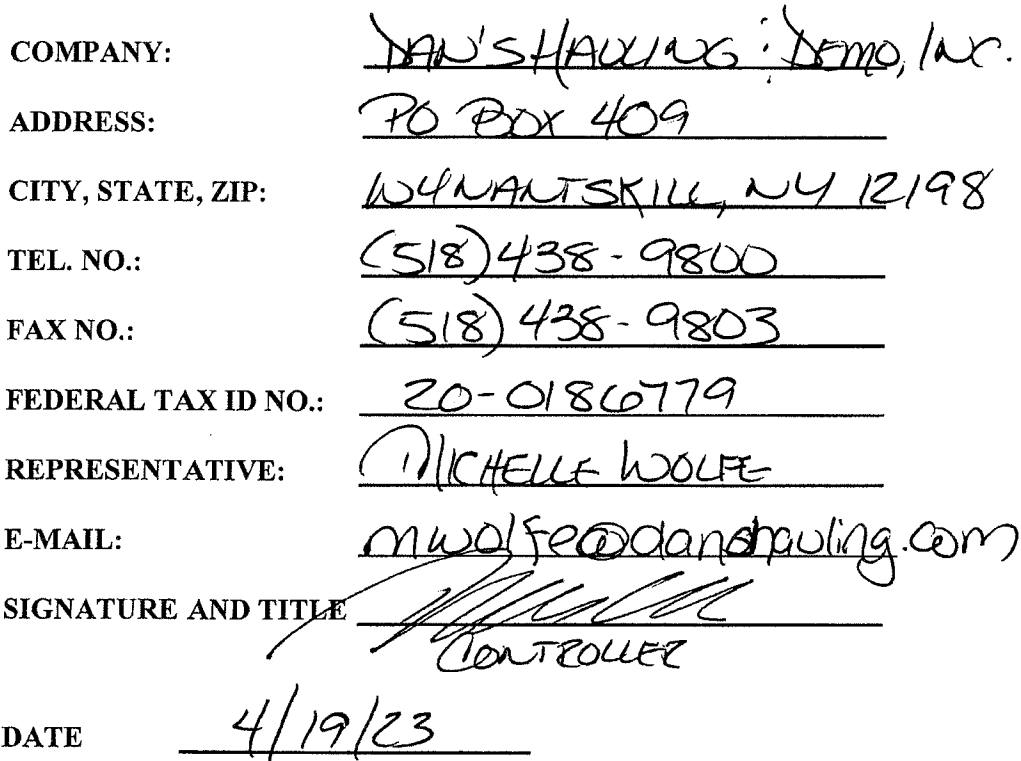 COMPANY: DAN'S HAULING & DEMO, INC.
ADDRESS: PO BOX 409
CITY, STATE, ZIP: WYNANTSKILL, NY 12198
TEL. NO.: (518) 438-9800
FAX NO.: (518) 438-9803
FEDERAL TAX ID NO.: 20-0186779
REPRESENTATIVE: MICHELLE WOLFE
E-MAIL: mwolfe@danshauling.com
SIGNATURE AND TITLE
CONTROLLER
DATE 4/19/23